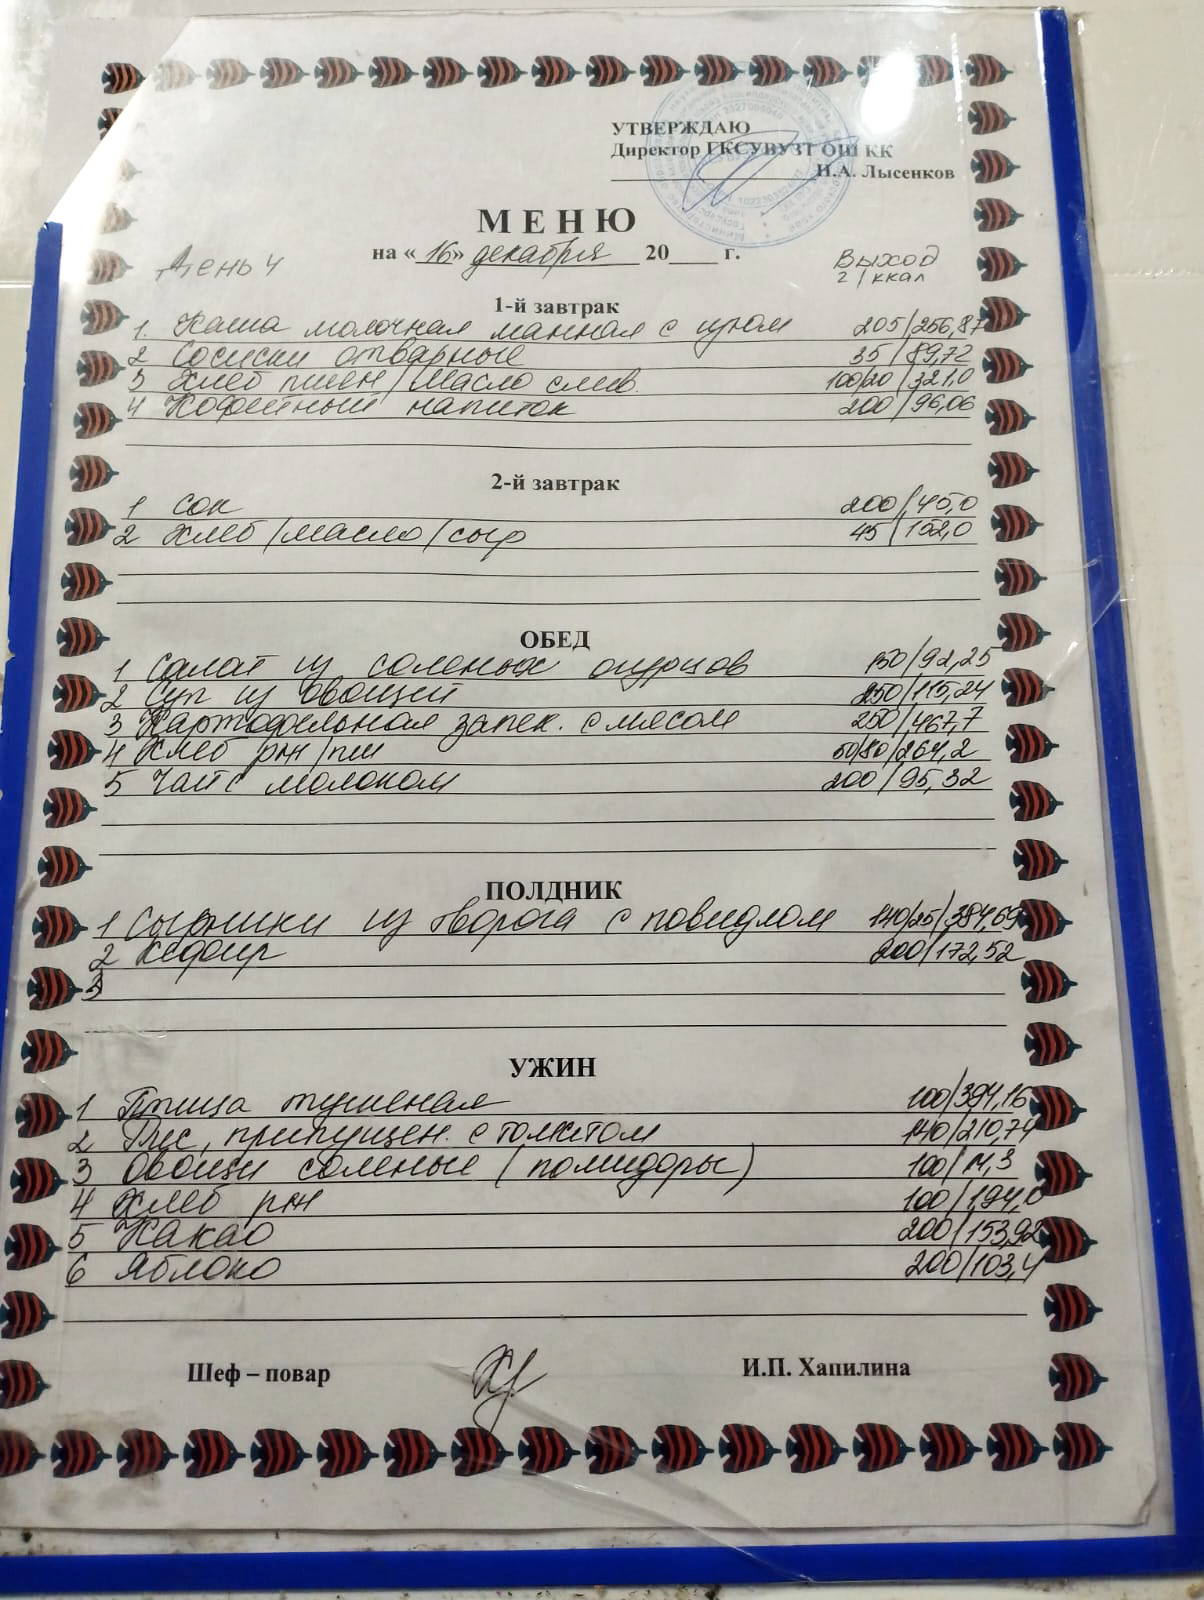 УТВЕРЖДАЮ
Директор ГКСУВУЗТ ОШ КК
Н.А. Лысенков
МЕНЮ
на «16» декабря 20 г.
День 4
Выход
г/ккал
1-й завтрак
1. Каша молочная манная с изюм 205/256,87
2 Сосиски отварные 35/89,72
3 Хлеб пшен/масло слив. 100/20/321,0
4 Кофейный напиток 200/96,06
2-й завтрак
1 Сок 200/45,0
2 Хлеб/масло/сыр 45/152,0
ОБЕД
1 Салат из соленых огурцов 150/92,25
2 Суп из овощей 250/115,24
3 Картофельная запек. с мясом 250/467,7
4 Хлеб рж/пш 50/80/264,2
5 Чай с молоком 200/95,32
ПОЛДНИК
1 Сырники из творога с повидлом 140/25/384,69
2 Кефир 200/172,52
3
УЖИН
1 Птица тушеная 100/394,16
2 Рис, припущен. с томатом 140/210,74
3 Овощи соленые (помидоры) 100/14,3
4 Хлеб рж 100/194,0
5 Какао 200/153,92
6 Яблоко 200/103,4
Шеф – повар И.П. Хапилина